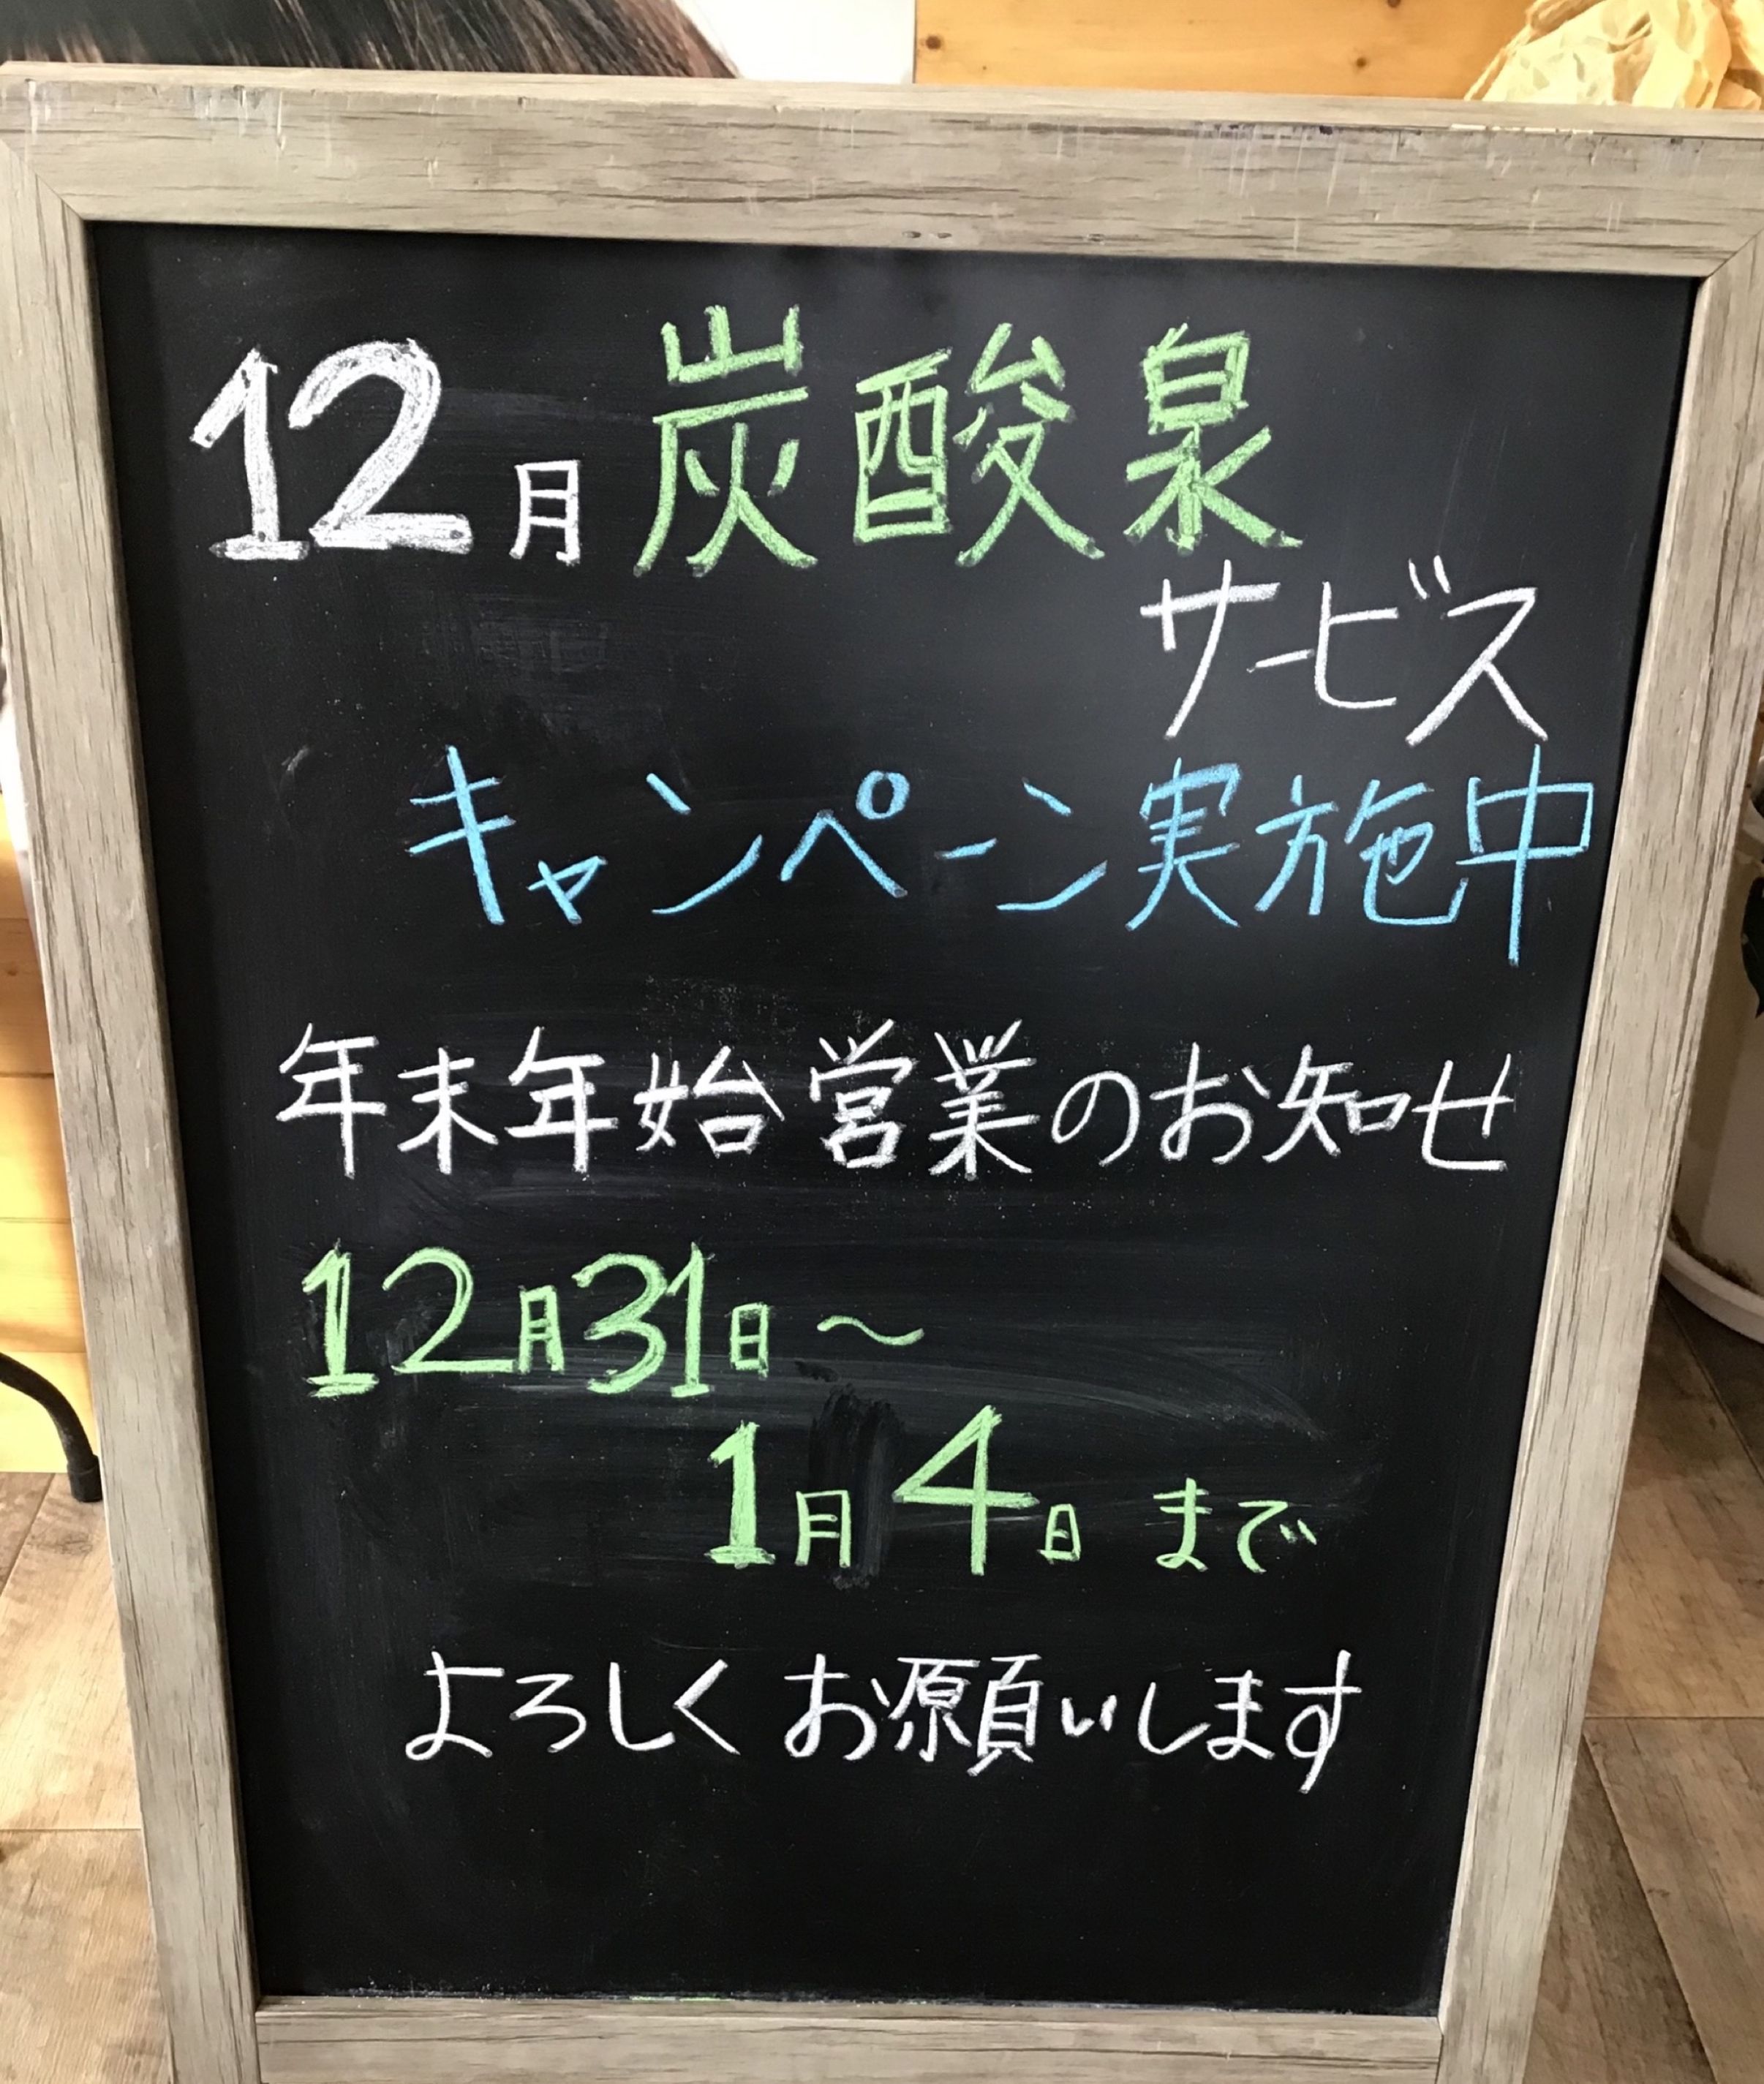 12月炭酸泉
サービス
キャンペーン実施中
年末年始営業のお知せ
12月31日～
1月4日 まで
よろしく お願いします